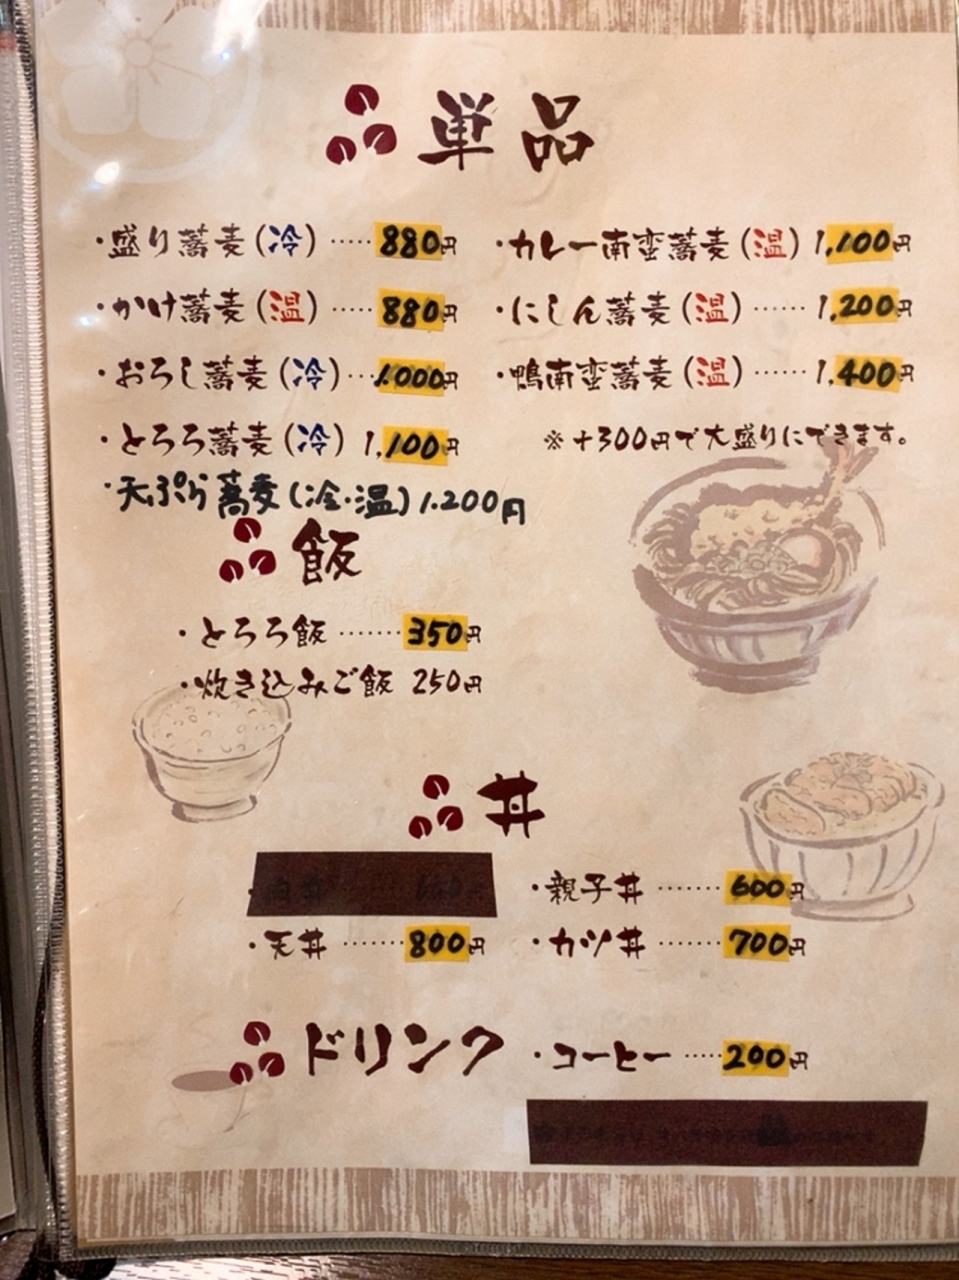 単品
・盛り蕎麦(冷)・・・・・880円
・かけ蕎麦(温)・・・・・880円
・おろし蕎麦(冷)・・・1.000円
・とろろ蕎麦(冷) 1,100円
・天ぷら蕎麦(冷・温)1.200円
・カレー南蛮蕎麦(温) 1,100円
・にしん蕎麦(温)・・・・・・1,200円
・鴨南蛮蕎麦(温)・・・・・・1,400円
※+300円で大盛りにできます。
飯
・とろろ飯・・・・・・・350円
・炊き込みご飯 250円
丼
・天丼・・・・・・・800円
・親子丼・・・・・・・600円
・カツ丼・・・・・・・700円
ドリンク
・コーヒー・・・・・200円